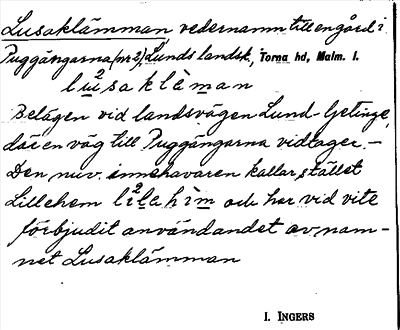 Lusaklämman vedernamn till en gård i
Puggängarna (nr 2), Lunds landsk., Torna hd, Malm. l.
lu²sakläman
Belägen vid landsvägen Lund-Getinge,
där en väg till Puggängarna vidtager. –
Den nuv. innehavaren kallar stället
Lillehem li²lahìm och har vid vite
förbjudit användandet av nam-
net Lusaklämman
I. INGERS